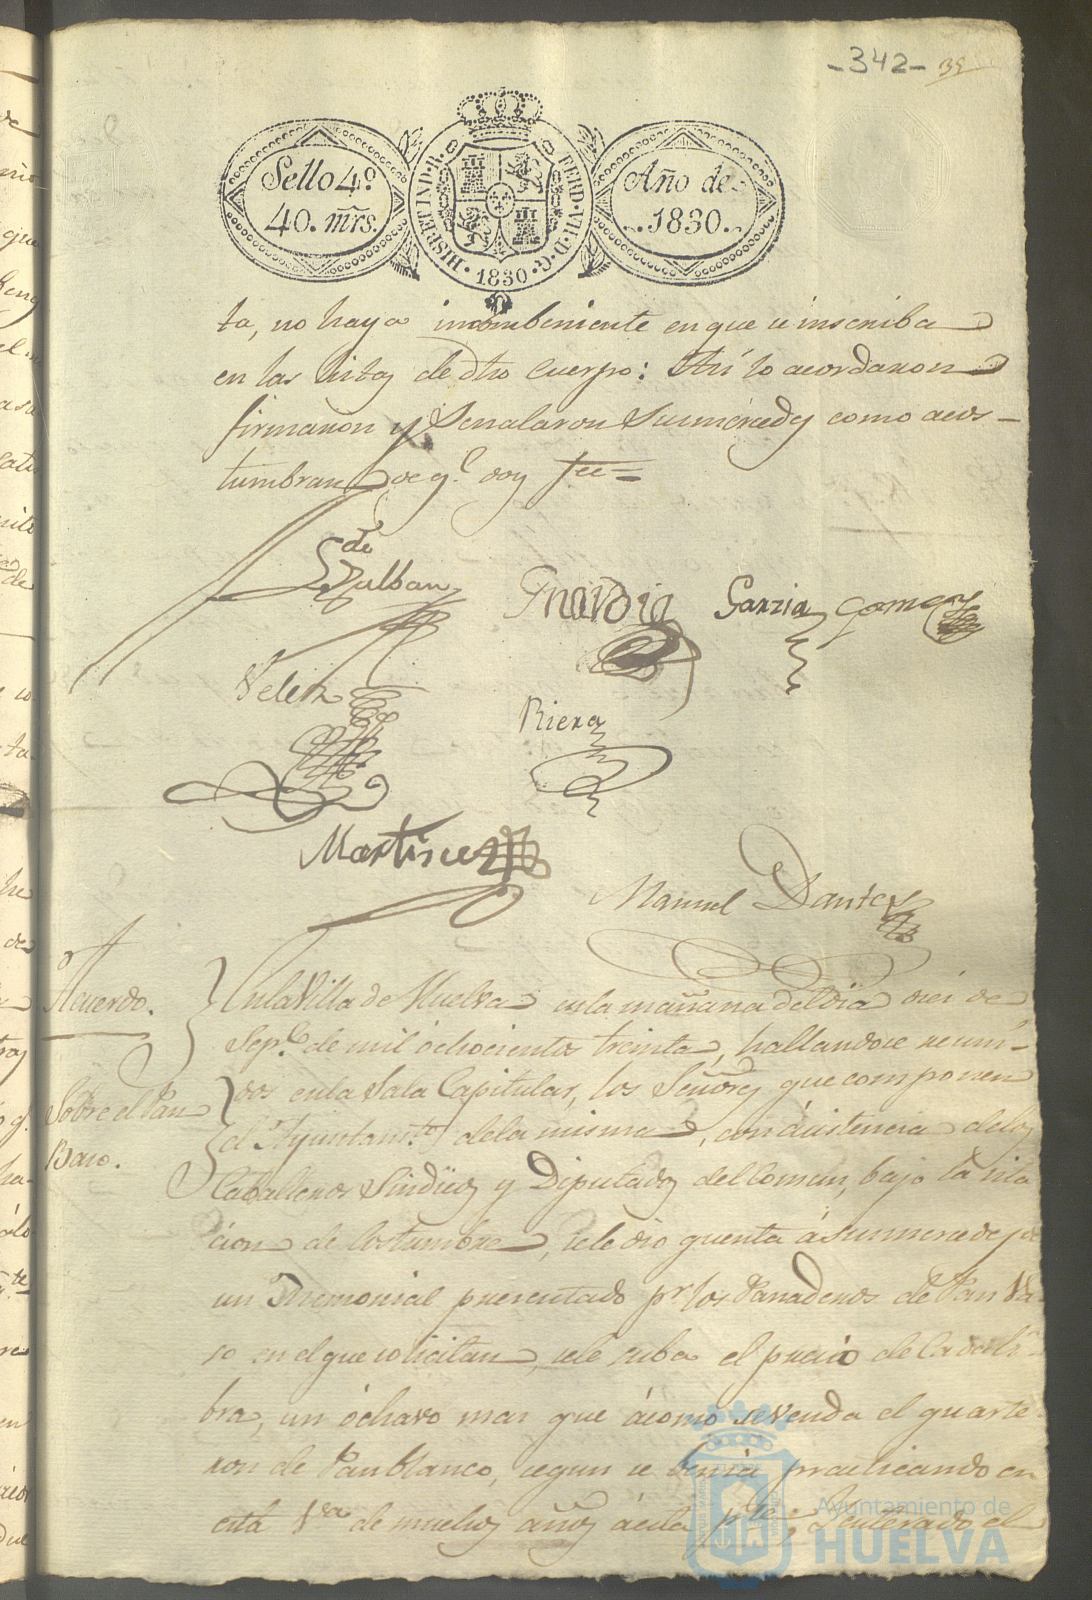 -342- 39
Sello 4º
40. mrs.
HISP. ET IND. R. FERD. VII. D. G.
1830
Año de
1830.
ta, no haya incombeniente en que se inscriba
en las listas de dho Cuerpo: Así lo acordaron
firmaron y Señalaron Sus mercedes como acos-
tumbran de qe. doy fee=
de
Zalban
Guardia Garzia Gomez
Velez
Riera
Martinez
Manuel Dantes
Acuerdo.
Sobre el Pan
Bazo.
En la Villa de Huelva en la mañana del dia diez de
Sepe. de mil óchocientos treinta, hallandose reuni-
dos en la Sala Capitular, los Señores que componen
el Ayuntamto. de la misma, con asistencia de los
Caballeros Sindicos y Diputados del Comun, bajo la cita
cion de costumbre, se le dio quenta á sus mercedes de
un Memorial presentado pr. los Panaderos de Pan Va-
so en el que solicitan, se le suba el precio de Cada li-
bra, un óchavo mas que ácomo se venda el quarte-
ron de Pan blanco, segun se benia practicando en
esta Va. de muchos años á esta pte.; Y enterado el
Ayuntamiento de
HUELVA